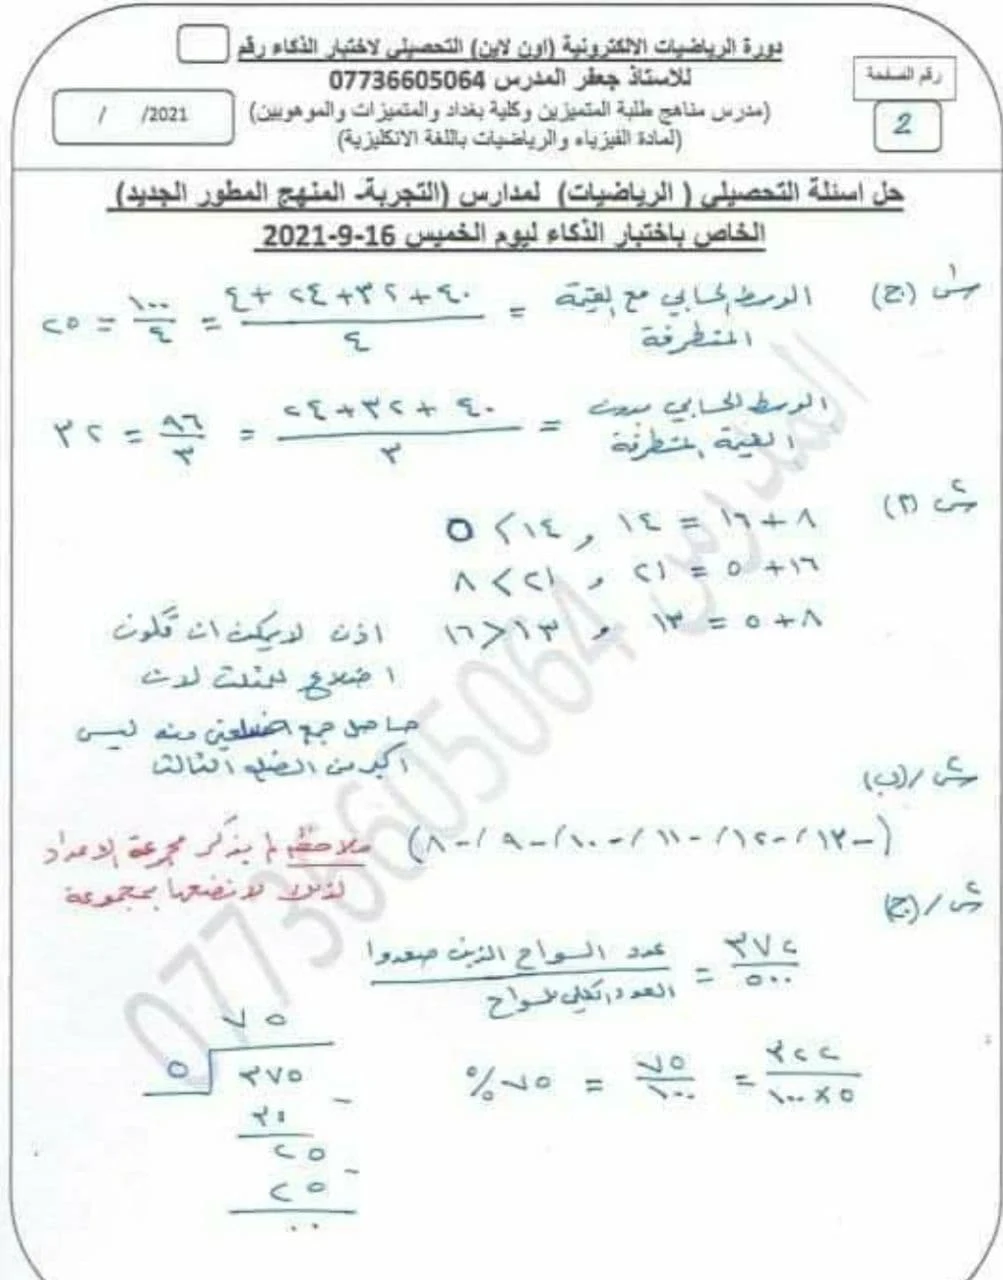 دورة الرياضيات الالكترونية (اون لاين) التحصيلي لاختبار الذكاء رقم
للاستاذ جعفر المدرس 07736605064
(مدرس مناهج طلبة المتميزين وكلية بغداد والمتميزات والموهوبين)
(لمادة الفيزياء والرياضيات باللغة الانكليزية)
رقم الصفحة
2
/ /2021
حل اسئلة التحصيلي ( الرياضيات) لمدارس (التجربة- المنهج المطور الجديد)
الخاص باختبار الذكاء ليوم الخميس 16-9-2021
س١ (ج) الوسط الحسابي مع القيمة المتطرفة = (٤٠ + ٣٢ + ٢٤ + ٤) / ٤ = ١٠٠ / ٤ = ٢٥
الوسط الحسابي بدون القيمة المتطرفة = (٤٠ + ٣٢ + ٢٤) / ٣ = ٩٦ / ٣ = ٣٢
س٢ (٢)
٨ + ١٦ = ١٤ , ١٤ > ٥
١٦ + ٥ = ٢١ , ٢١ > ٨
٨ + ٥ = ١٣ , ١٣ < ١٦
اذن لا يمكن ان تكون
اضلاع لمثلث لان
حاصل جمع الضلعين منه ليس
اكبر من الضلع الثالث
س٢/(ب)
(-١٣/-١٢/-١١/-١٠/-٩/-٨)
ملاحظة لم يذكر مجموعة الاعداد
لذلك لا نضعها بمجموعة
س٢/(ج)
٣٧٥ / ٥٠٠ = عدد السواح الذين صعدوا / العدد الكلي للسواح
= ٧٥ / ١٠٠ = ٧٥%
١٠٠ × ٥
٧٥
٥
٣٧٥
٣٥
٢٥
٢٥
٠٠
المدرس 07736605064